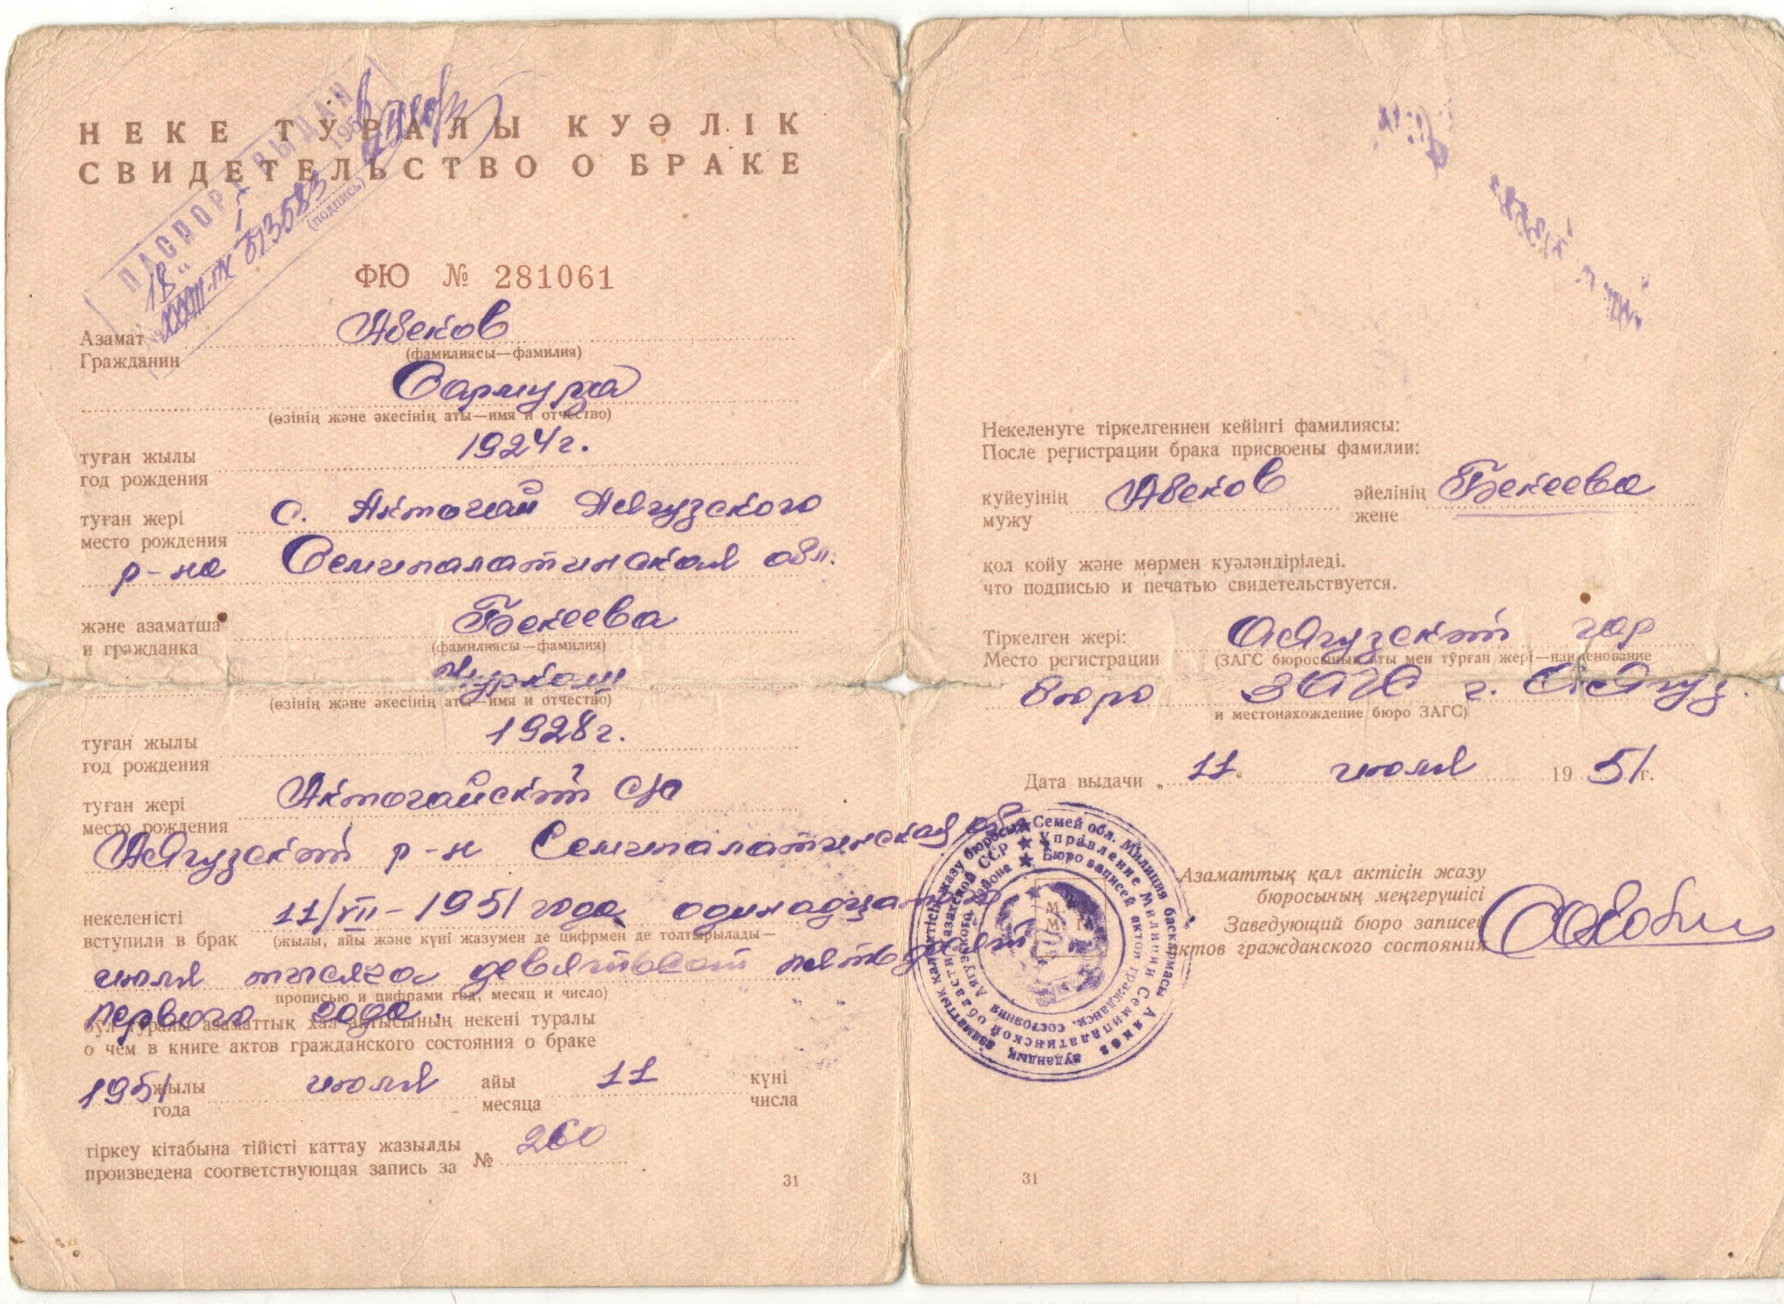 НЕКЕ ТУРАЛЫ КУӘЛІК
СВИДЕТЕЛЬСТВО О БРАКЕ
ПАСПОРТ ВЫДАН
18 195
№ XXXIII-ПХ 513583
(подпись)
ФЮ № 281061
Азамат
Гражданин
Абеков
(фамилиясы—фамилия)
Сармуза
(өзінің және әкесінің аты—имя и отчество)
туған жылы
год рождения
1924 г.
туған жері
место рождения
с. Актогай Аягузского
р-на Семипалатинской обл.
және азаматша
и гражданка
Бекеева
(фамилиясы—фамилия)
Нуркам
(өзінің және әкесінің аты—имя и отчество)
туған жылы
год рождения
1928 г.
туған жері
место рождения
Актогайский с/с
Аягузский р-н Семипалатинская об
некеленісті
вступили в брак
11/VII-1951 года одинадцатого
(жылы, айы және күні жазумен де цифрмен де толтырылады—
июля тысяча девятьсот пятьдесят
прописью и цифрами год, месяц и число)
первого года.
бұл туралы азаматтық хал актысының некені туралы
о чем в книге актов гражданского состояния о браке
1951 жылы июля айы 11 күні
года месяца числа
тіркеу кітабына тійісті каттау жазылды
произведена соответствующая запись за № 260
31
Некеленуге тіркелгеннен кейінгі фамилиясы:
После регистрации брака присвоены фамилии:
күйеуінің Абеков әйелінің Бекеева
мужу жене
қол койу және мөрмен куәләндіріледі.
что подписью и печатью свидетельствуется.
Тіркелген жері:
Место регистрации
Аягузский гор
(ЗАГС бюросының аты мен тұрған жері—наименование
бюро ЗАГС г. Аягуз.
и местонахождение бюро ЗАГС)
Дата выдачи „ 11 " июля 1951 г.
Азаматтық қал актісін жазу
бюросының меңгерушісі
Заведующий бюро записей
актов гражданского состояния
Семей обл. Милиция басқармасы Аякөз аудандық азаматтық қал актісін жазу бюросы
Управление Милиции Семипалатинской области Казахской ССР
Бюро записей актов гражданск. состояния Аягузского района
31